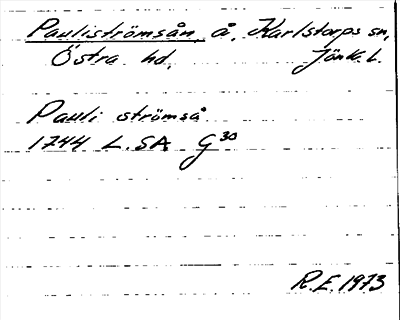 Pauliströmsån, å, Karlstorps sn,
Östra hd, Jönk. L.
Pauli strömså
1744 L.SA G30
R.E. 1973